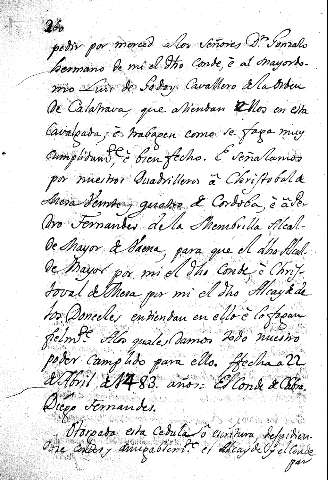 260
pedir por merced a los Señores Dn. Gonzalo
hermano de mi el dho Conde, è al Mayordo-
mo Luis de Godoy Cavallero de la Orden
de Calatrava, que atiendan ellos en esta
Cavalgada, è trabagen como se faga muy
cumplidamte. è bien fecho. E señalamos
por nuestros Quadrilleros à Christobal de
Mesa de Cordoba, è à Pe-
dro Fernandes de la Membrilla Alcal-
de Mayor de Baena, para que el dho Alcal-
de Mayor por mi el dho Conde, è Chris-
toval de Mesa por mi el dho Alcayde de
los Donceles entiendan en ello è lo fagan
fielmte. A los quales damos todo nuestro
poder cumplido para ello. ffecha a 22
de Abril de 1483 años: El Conde de Cabra
Diego Fernandes.
Otorgada esta Cedula, ò escritura
Condes, y amigablemte. el Alcayde y el Conde